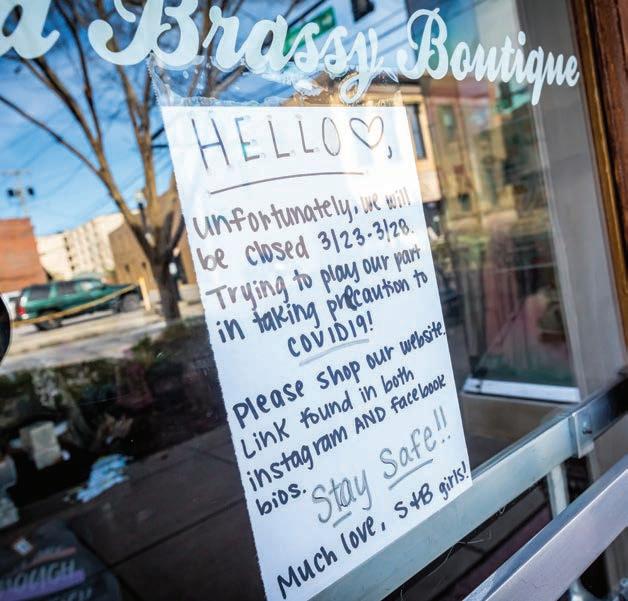 Brassy Boutique
HELLO♡,
unfortunately, we will
be closed 3/23-3/28.
Trying to play our part
in taking precaution to
COVID19!
Please shop our website.
Link found in both
instagram AND facebook
bios. Stay Safe!!
Much love, S+B girls!